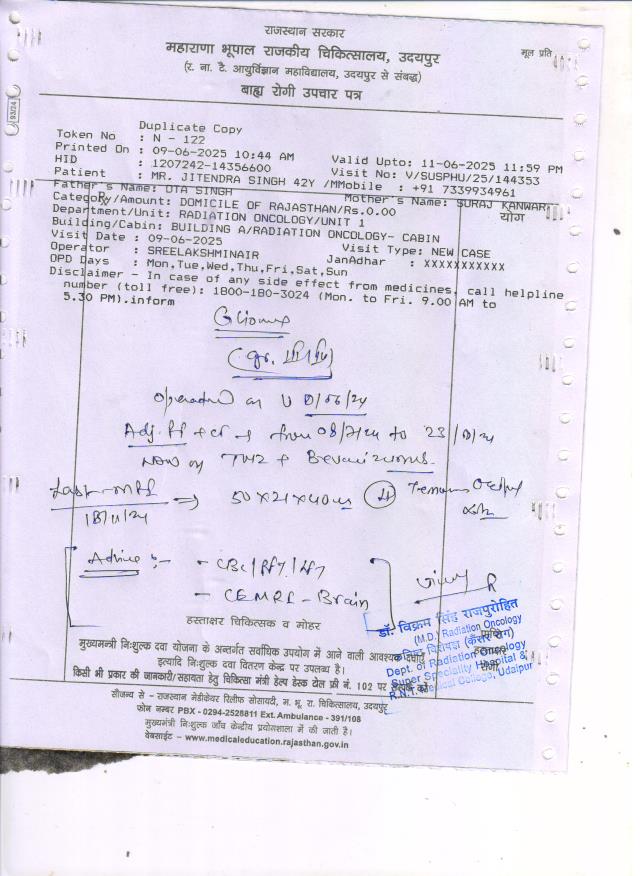 राजस्थान सरकार
महाराणा भूपाल राजकीय चिकित्सालय, उदयपुर
मूल प्रति
(र. ना. टै. आयुर्विज्ञान महाविद्यालय, उदयपुर से संबद्ध)
बाह्य रोगी उपचार पत्र
93/24
Duplicate Copy
Token No : N - 122
Printed On : 09-06-2025 10:44 AM Valid Upto: 11-06-2025 11:59 PM
HID : 1207242-14356600 Visit No: V/SUSPHU/25/144353
Patient : MR. JITENDRA SINGH 42Y /MMobile : +91 7339934961
Father's Name: OTA SINGH Mother's Name: SURAJ KANWAR
Category/Amount: DOMICILE OF RAJASTHAN/Rs.0.00
योग
Department/Unit: RADIATION ONCOLOGY/UNIT 1
Building/Cabin: BUILDING A/RADIATION ONCOLOGY- CABIN
Visit Date : 09-06-2025 Visit Type: NEW CASE
Operator : SREELAKSHMINAIR JanAdhar : XXXXXXXXXXX
OPD Days : Mon,Tue,Wed,Thu,Fri,Sat,Sun
Disclaimer - In case of any side effect from medicines, call helpline
number (toll free): 1800-180-3024 (Mon. to Fri. 9.00 AM to
5.30 PM).inform
(gr. III/IV)
Operated on /06/24
Adj. from 08/ to 23/
Now on
Last MRI 50 x 21 x 40
Advice :-
- CBC/RFT/LFT
- CEMRI - Brain
हस्ताक्षर चिकित्सक व मोहर
डॉ. विक्रम सिंह राजपुरोहित
(M.D.) Radiation Oncology
(कैंसर रोग)
Dept. of Radiation Oncology
Super Speciality Hospital &
R.N.T. Medical College, Udaipur
मुख्यमन्त्री निःशुल्क दवा योजना के अन्तर्गत सर्वाधिक उपयोग में आने वाली आवश्यक
इत्यादि निःशुल्क दवा वितरण केन्द्र पर उपलब्ध है।
किसी भी प्रकार की जानकारी/सहायता हेतु चिकित्सा मंत्री हेल्प डेस्क टोल फ्री नं. 102 पर
सौजन्य से - राजस्थान मेडीकेयर रिलीफ सोसायटी, म. भू. रा. चिकित्सालय, उदयपुर
फोन नम्बर PBX - 0294-2528811 Ext. Ambulance - 391/108
मुख्यमंत्री निःशुल्क जाँच केन्द्रीय प्रयोगशाला में की जाती है।
वेबसाईट – www.medicaleducation.rajasthan.gov.in